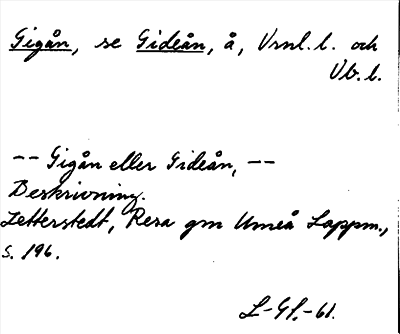 Gigån, se Gideån, å, Vrnl. l. och
Vb. l.
-- Gigån eller Gideån, --
Beskrivning.
Zetterstedt, Resa gm Umeå Lappm.,
s. 196.
L-Gl.-61.